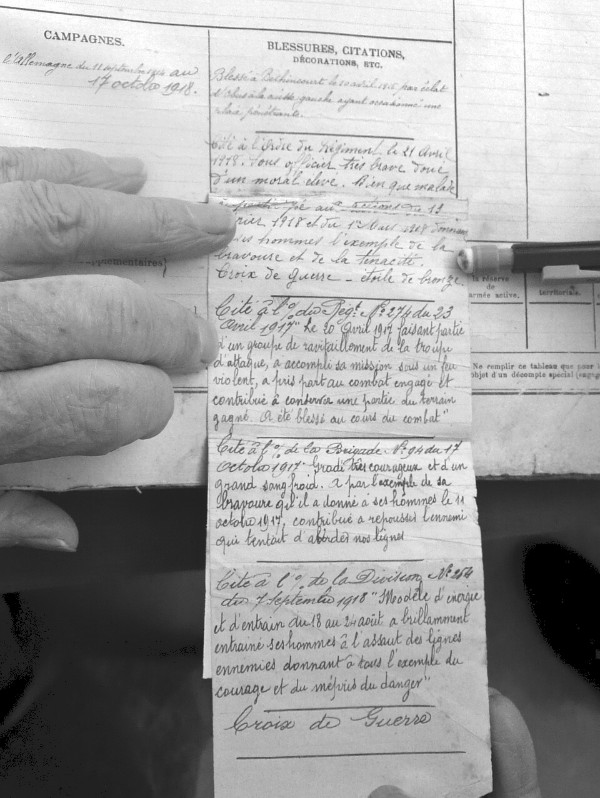 CAMPAGNES.
l'Allemagne du 11 septembre 1914 au
17 octobre 1918.
BLESSURES, CITATIONS,
DÉCORATIONS, ETC.
Blessé à Béthincourt le 10 avril 1916 par éclat
d'obus à la cuisse gauche ayant occasionné une
plaie pénétrante.
Cité à l'Ordre du Régiment le 21 Avril
1918. Sous officier très brave doué
d'un moral élevé. Bien que malade
au 13
rier 1918 et du 1 Mars 1918 donnant
ses hommes l'exemple de la
bravoure et de la ténacité.
Croix de guerre - étoile de bronze.
Cité à l'% du Régt. N° 274 du 23
Avril 1917 " Le 20 Avril 1917 faisant partie
d'un groupe de ravitaillement de la troupe
d'attaque, a accompli sa mission sous un feu
violent, a pris part au combat engagé et
contribué à conserver une partie du terrain
gagné. A été blessé au cours du combat"
Cité à l'% de la Brigade N° 94 du 17
Octobre 1917. Gradé très courageux et d'un
grand sang froid. A par l'exemple de sa
bravoure qu'il a donné à ses hommes le 11
octobre 1917, contribué a repousser l'ennemi
qui tentait d'aborder nos lignes
Cité à l'% de la Division N° 254
du 7 Septembre 1918 " Modèle d'énergie
et d'entrain du 18 au 24 août a brillamment
entrainé ses hommes à l'assaut des lignes
ennemies donnant à tous l'exemple du
courage et du mépris du danger"
Croix de Guerre
supplémentaires)
la réserve
de
armée active.
territoriale.
Ne remplir ce tableau que pour l
objet d'un décompte spécial (enga